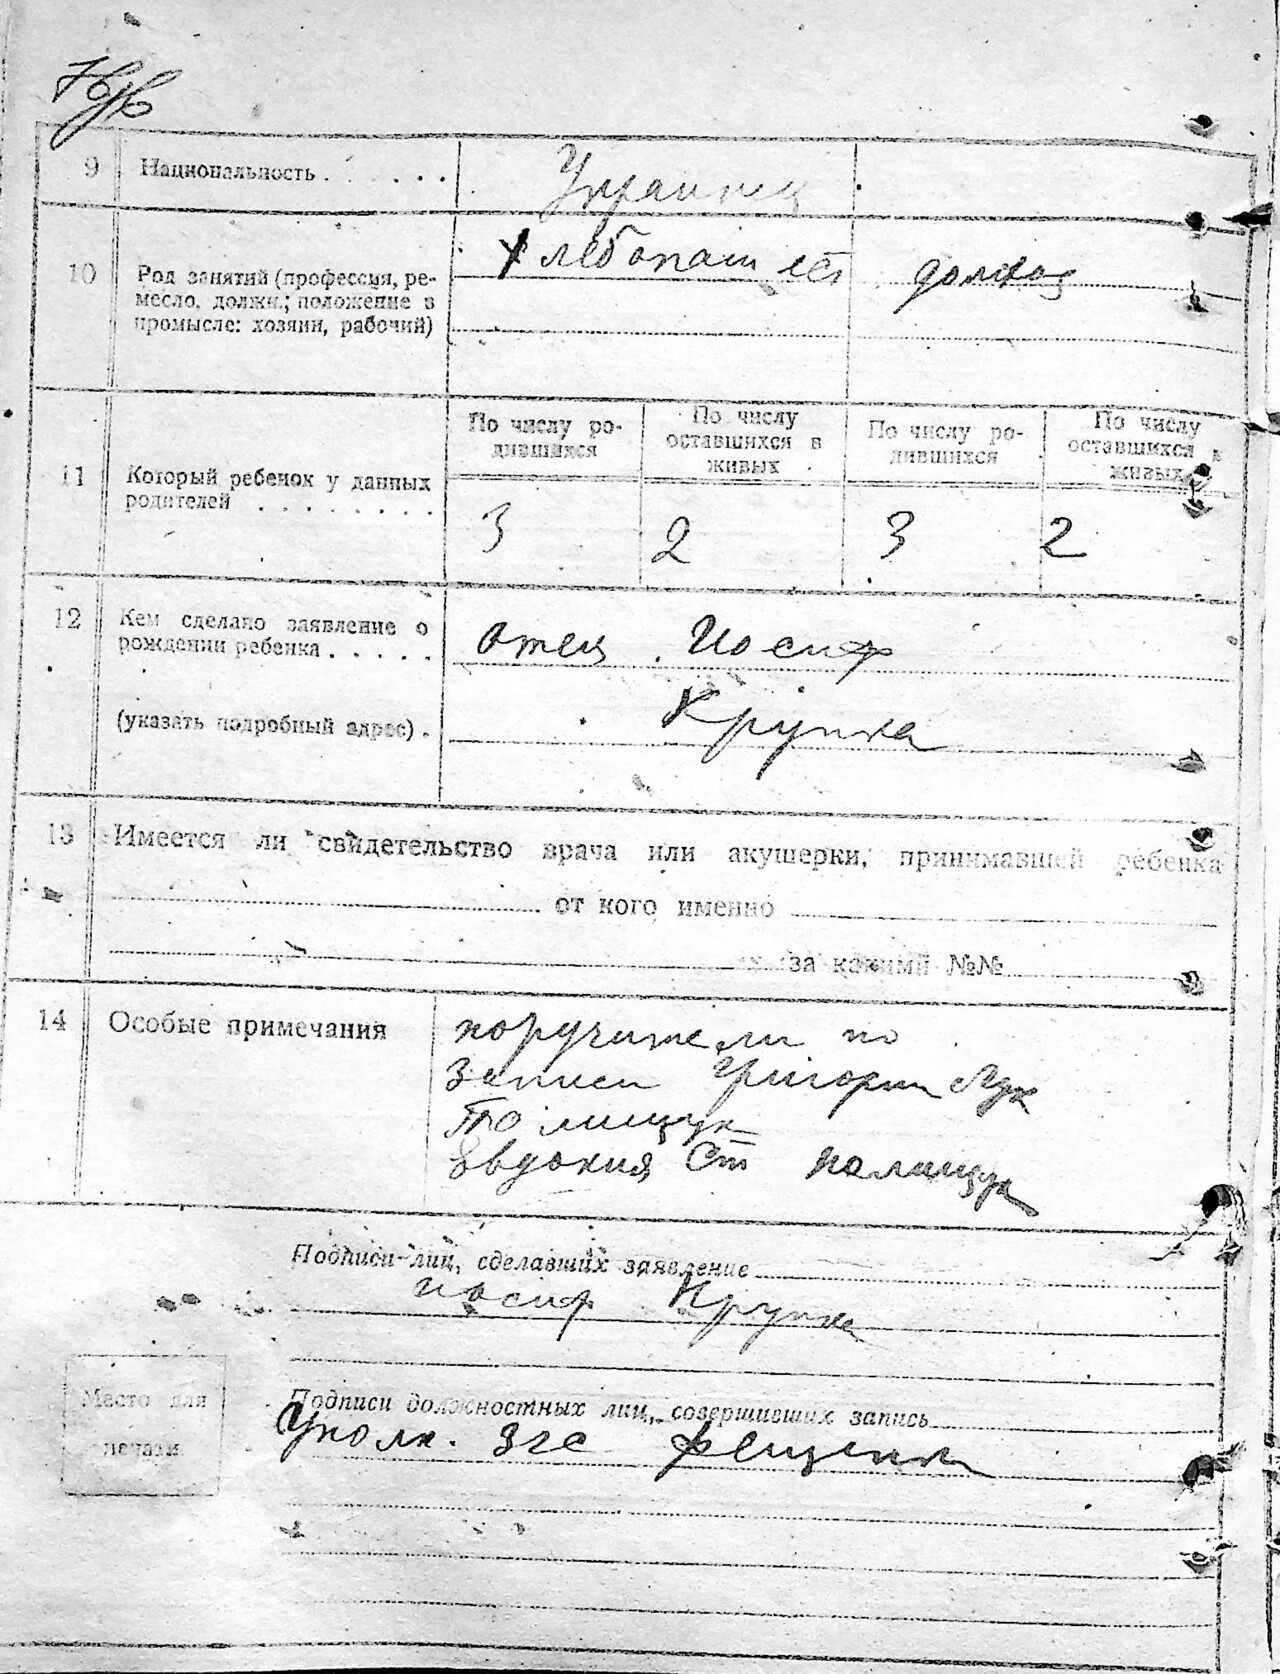 9 Национальность . . . . . . Украинец
10 Род занятий (профессия, ре-
месло, должн.; положение в
промысле: хозяин, рабочий)
Хлебопашест домхоз
11 Который ребенок у данных
родителей . . . . . . . .
По числу ро-
дившихся
По числу
оставшихся в
живых
По числу ро-
дившихся
По числу
оставшихся в
живых
3 2 3 2
12 Кем сделано заявление о
рождении ребенка . . . . .
(указать подробный адрес) .
отец Иосиф
Крупка
13 Имеется ли свидетельство врача или акушерки, принимавшей ребенка
от кого именно
за какими №№
14 Особые примечания
поручители по
записи Григорий Лук
Полищук
Евдокия Ст Полищук
Подписи лиц, сделавших заявление
Иосиф Крупка
Место для
печати
Подписи должностных лиц, совершивших запись
Уполн. Згс